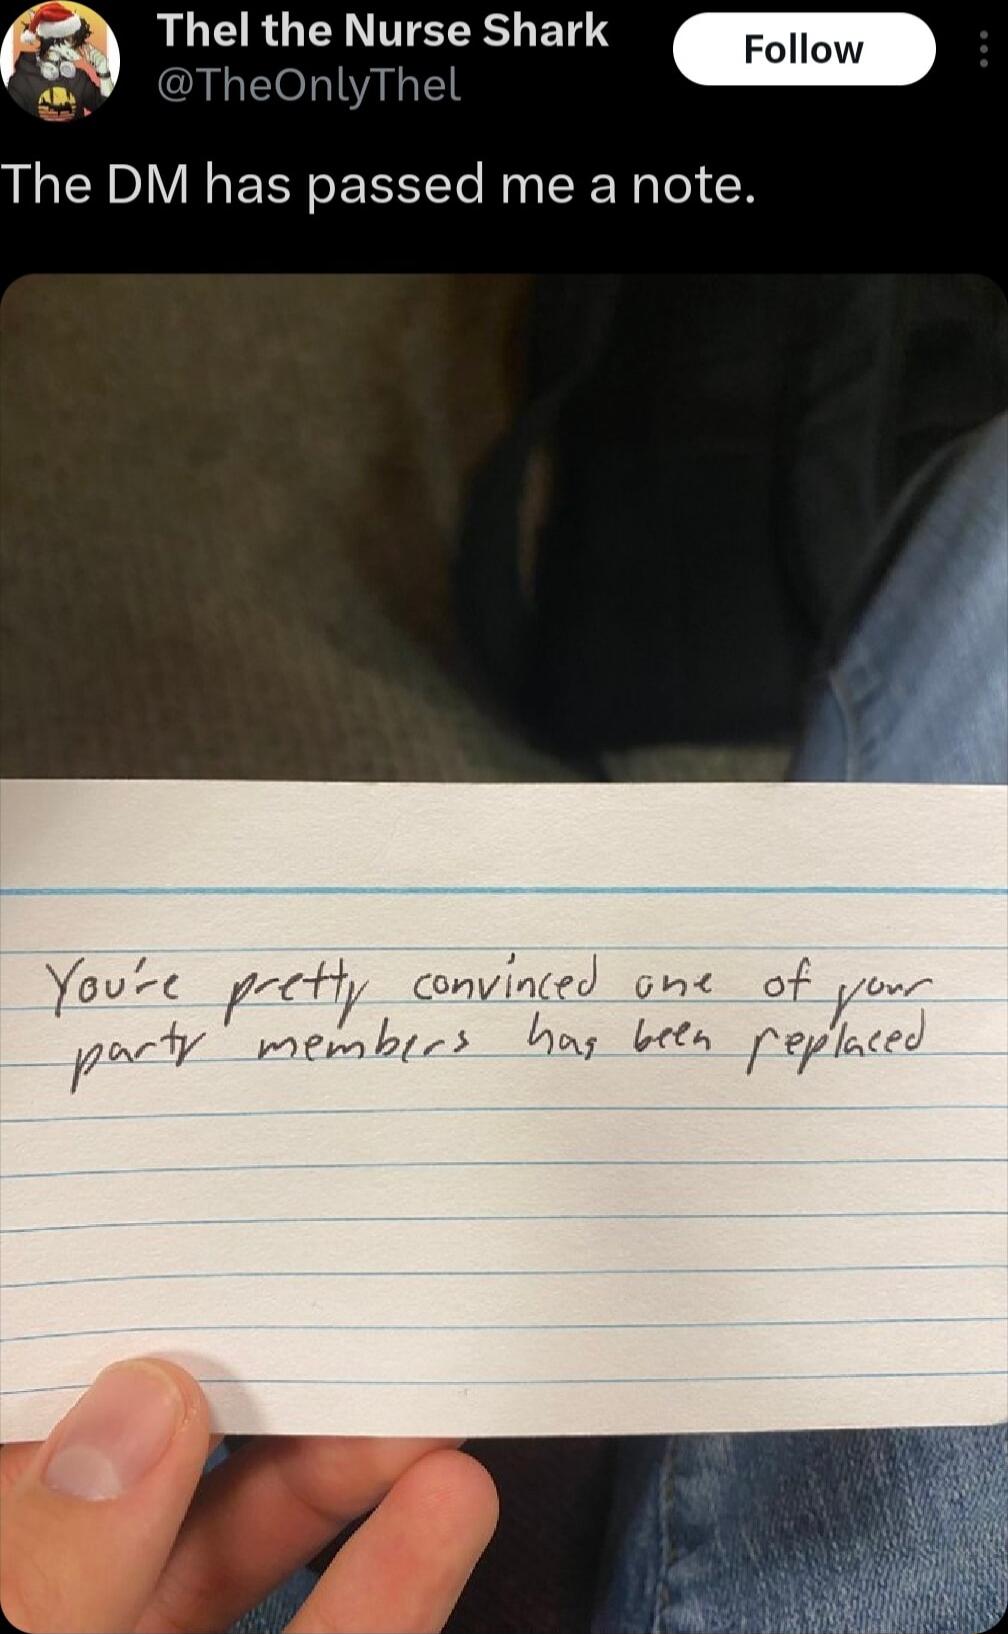 Thel the Nurse Shark
@TheOnlyThel
Follow
The DM has passed me a note.
You're pretty convinced one of your
party members has been replaced